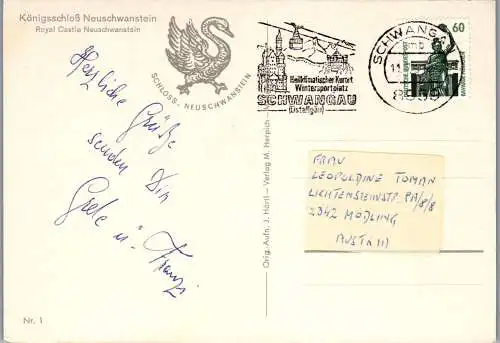 Königsschloß Neuschwanstein
Royal Castle Neuschwanstein
SCHLOSS - NEUSCHWANSTEIN
Herzliche
Grüße
senden Dir
Grete u. Franzi
Nr. 1
Orig.-Aufn. J. Härtl - Verlag M. Herpich -
Heilklimatischer Kurort
Wintersportplatz
SCHWANGAU
(Ostallgäu)
SCHWANGAU
60
FRAU
LEOPOLDINE TOMAN
LICHTENSTEINSTR. 8/8
2342 MÖDLING
AUSTRIA